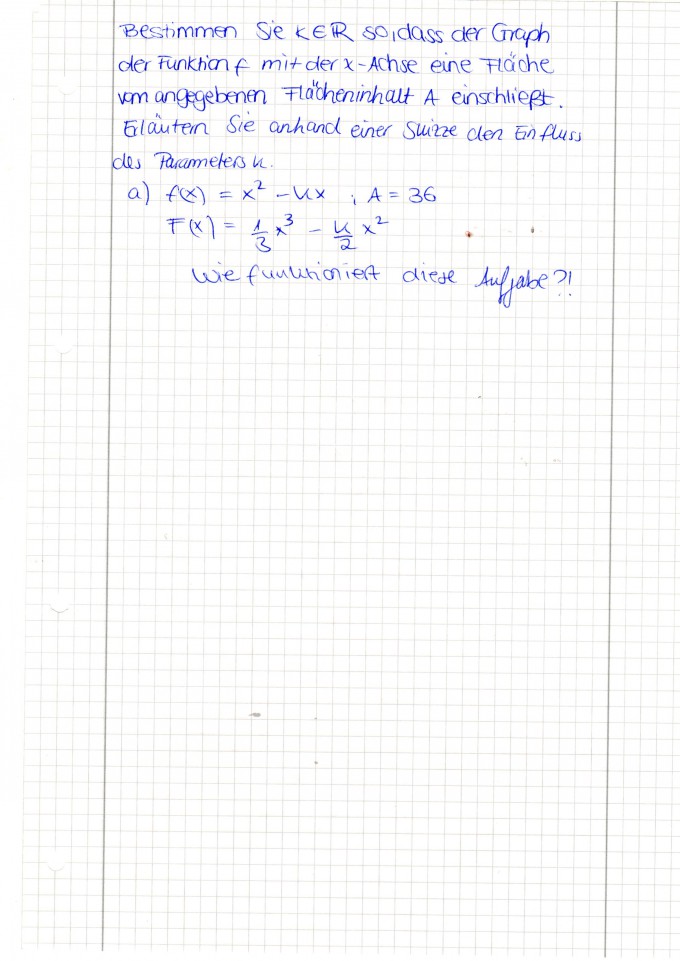 Bestimmen Sie k∈ℝ so, dass der Graph
der Funktion f mit der x-Achse eine Fläche
vom angegebenen Flächeninhalt A einschließt.
Erläutern Sie anhand einer Skizze den Einfluss
des Parameters k.
a) f(x) = x² - kx ; A = 36
F(x) = 1/3 x³ - k/2 x²
Wie funktioniert diese Aufgabe?!